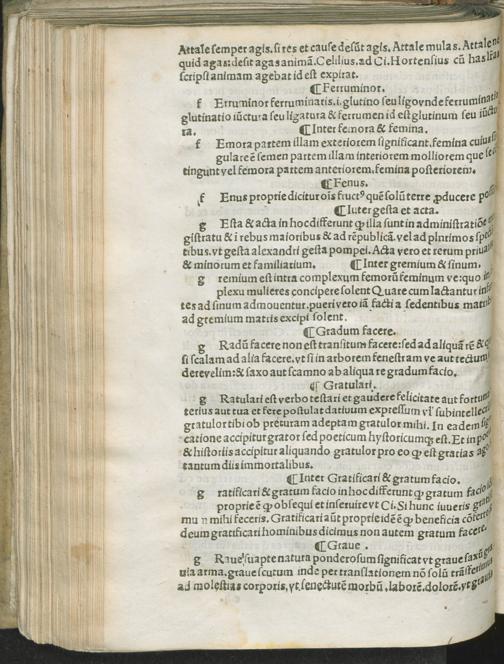 Attale semper agis. si res et cause desūt agis. Attale mulas. Attal ene
quid agas: desit agas animā. Celilius. ad Ci. Hortensius cū has lr̄as
scripsi animam agebat id est expirat.
¶ Ferruminor.
f Erruminor ferruminatis. i. glutino seu ligo vnde ferruminatio
glutinatio iūctura seu ligatura & ferrumen id est glutinum seu iūctu
ra. ¶ Inter femora & femina.
f Emora partem illam exteriorem significant. femina cuius
gulare ē semen partem illam interiorem molliorem que se
tingunt vel femora partem anteriorem. femina posteriorem.
¶ Fenus.
f Enus proprie dicitur oīs fructꝰ quē solū terre ꝓducere
¶ Iuter gesta et acta.
g Esta & acta in hoc differunt ꝙ illa sunt in administratiōe
gistratu & i rebus maioribus & ad rēpublicā. vel ad plnrimos
tibus. vt gesta alexandri gesta pompei. Acta vero et rerum
& minorum et familiatium. ¶ Inter gremium & sinum.
g remium est intra complexum femorū feminum ve: quo in
plexu mulieres concipere solent Quare cum lactantur
tes ad sinum admouentur. pueri vero iā facti a sedentibus
ad gremium matris excipi solent.
¶ Gradum facere.
g Radū facere non est transitum facere: sed ad aliquā rē &
si scalam ad alia facere. vt si in arborem fenestram ve aut tectum
dere velim: & saxo aut scamno ab aliqua re gradum facio.
¶ Gratulari.
g Ratulari est verbo testari et gaudere felicitate aut fortuna
terius aut tua et fere postulat datiuum expressum vl' subintellectum
gratulor tibi ob preturam adeptam gratulor mihi. In eadem
catione accipitur grator sed poeticum hystoricumqꝫ est. Et in
& historiis accipitur aliquando gratulor pro eo ꝙ est gratias
tantum diis immortalibus.
¶ Inter Gratificari & gratum facio.
g ratificari & gratum facio in hoc differunt ꝙ gratum facio
proprie ē ꝙ obsequi et inseruire vt Ci. Si hunc iuueris
mu n mihi feceris. Gratificari aūt proprie idē ē ꝙ beneficia
deum gratificari hominibus dicimus non autem gratum facere.
¶ Graue.
g Raue suapte natura ponderosum significat vt graue saxū
uia arma. graue scutum inde per translationem nō solū
ad molestias corporis. vt senectutē morbū. laborē. dolorē. vt